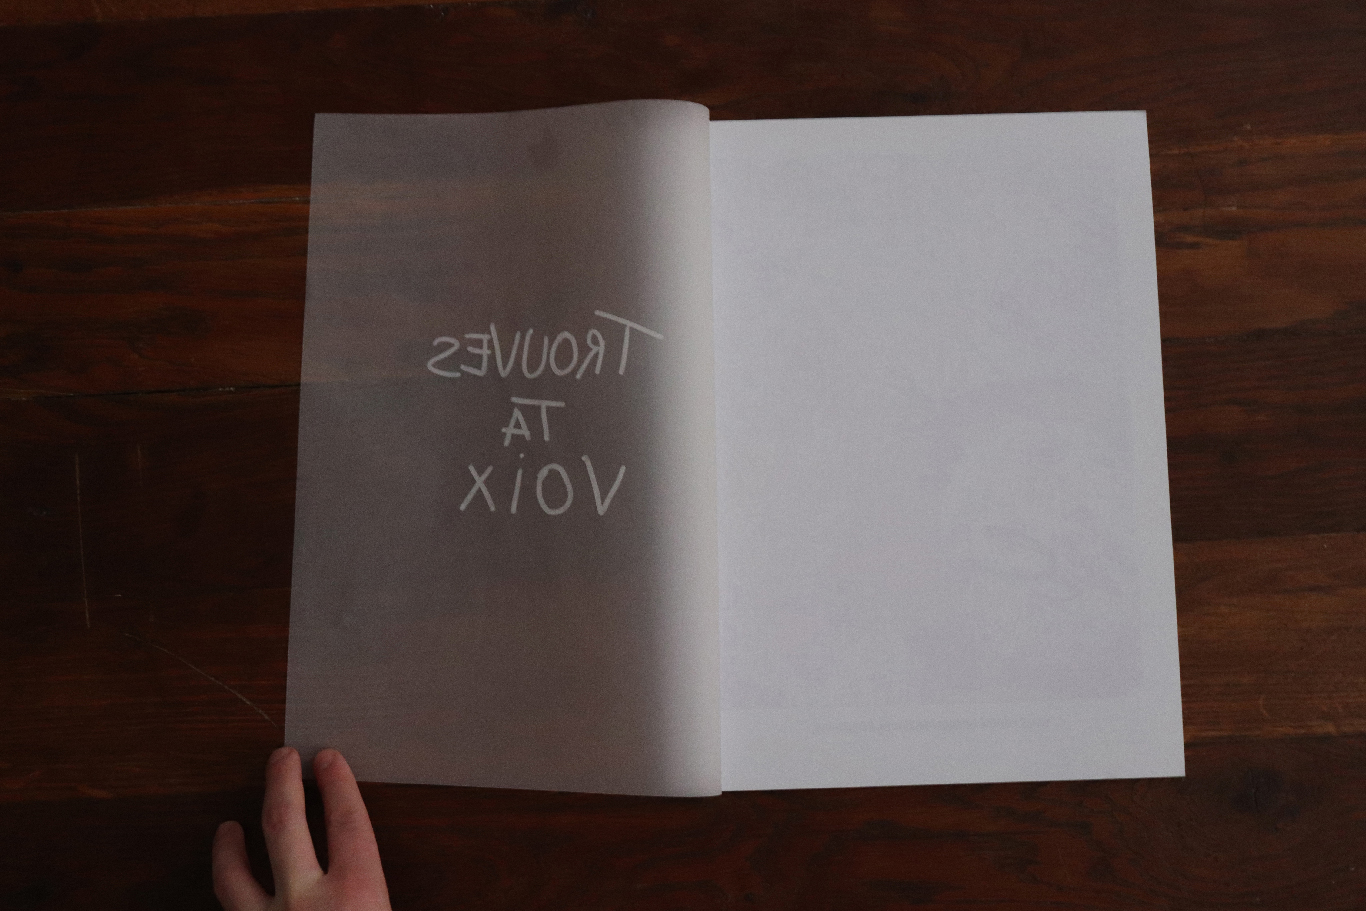 TROUVES
TA
VOIX